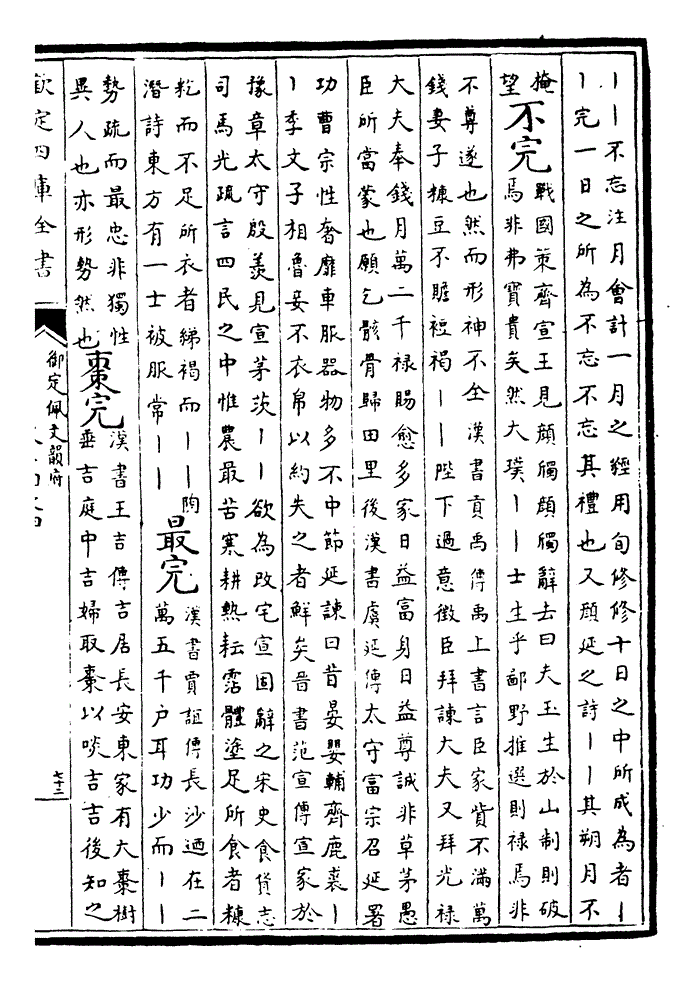 丨丨不忘注月會計一月之經用旬修修十日之中所成為者丨
丨完一日之所為不忘不忘其禮也又顔延之詩丨丨其朔月不
掩望
不完
戰國策齊宣王見顔斶顔斶辭去曰夫玉生於山制則破
焉非弗寶貴矣然大璞丨丨士生乎鄙野推選則禄焉非
不尊遂也然而形神不全漢書貢禹傳禹上書言臣家貲不滿萬
錢妻子糠豆不贍裋褐丨丨陛下過意徴臣拜諫大夫又拜光禄
大夫奉錢月萬二千禄賜愈多家日益富身日益尊誠非草茅愚
臣所當蒙也願乞骸骨歸田里後漢書虞延傳太守富宗召延署
功曹宗性奢靡車服器物多不中節延諫曰昔晏嬰輔齊鹿裘丨
丨季文子相魯妾不衣帛以約失之者鮮矣晉書范宣傳宣家於
豫章太守殷羡見宣茅茨丨丨欲為改宅宣固辭之宋史食貨志
司馬光疏言四民之中惟農最苦寒耕熱耘霑體塗足所食者糠
籺而不足所衣者綈褐而丨丨陶
潛詩東方有一士被服常丨丨
最完
漢書賈誼傳長沙迺在二
萬五千户耳功少而丨丨
勢疏而最忠非獨性
異人也亦形勢然也
棗完
漢書王吉傳吉居長安東家有大棗樹
垂吉庭中吉婦取棗以啖吉吉後知之
欽定四庫全書
御定佩文韻府
七十二